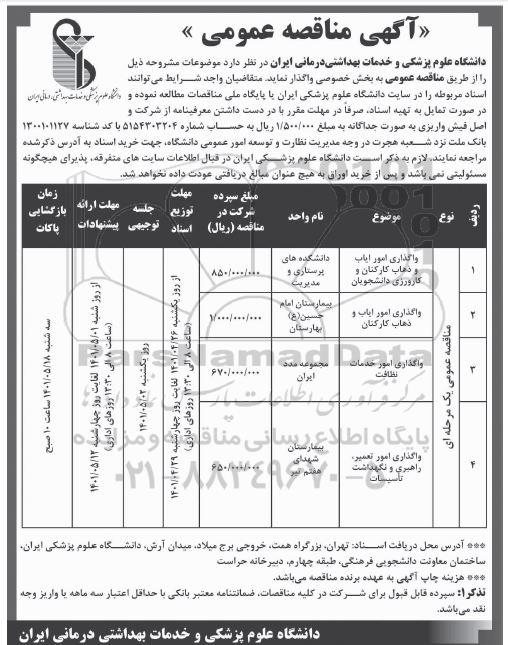 «آگهی مناقصه عمومی»
دانشگاه علوم پزشکی و خدمات بهداشتی، درمانی ایران
دانشگاه علوم پزشکی و خدمات بهداشتی‌درمانی ایران در نظر دارد موضوعات مشروحه ذیل
را از طریق مناقصه عمومی به بخش خصوصی واگذار نماید. متقاضیان واجد شرایط می‌توانند
اسناد مربوطه را در سایت دانشگاه علوم پزشکی ایران یا پایگاه ملی مناقصات مطالعه نموده و
در صورت تمایل به تهیه اسناد، صرفاً در مهلت مقرر با در دست داشتن معرفینامه از شرکت و
اصل فیش واریزی به صورت جداگانه به مبلغ ۱/۵۰۰/۰۰۰ ریال به حساب شماره ۵۱۵۴۳۰۳۲۰۴ با کد شناسه ۱۳۰۰۱۰۱۱۲۷
بانک ملت نزد شعبه هجرت در وجه مدیریت نظارت و توسعه امور عمومی دانشگاه، جهت خرید اسناد به آدرس ذکرشده
مراجعه نمایند، لازم به ذکر است دانشگاه علوم پزشکی ایران در قبال اطلاعات سایت های متفرقه، پذیرای هیچگونه
مسئولیتی نمی باشد و پس از خرید اوراق به هیچ عنوان مبالغ دریافتی عودت داده نخواهد شد.
ردیف نوع موضوع نام واحد مبلغ سپرده شرکت در مناقصه (ریال) مهلت توزیع اسناد جلسه توجیهی مهلت ارائه پیشنهادات زمان بازگشایی پاکات
۱ واگذاری امور ایاب و ذهاب کارکنان و کارورزی دانشجویان دانشکده های پرستاری و مدیریت ۸۵۰/۰۰۰/۰۰۰
۲ واگذاری امور ایاب و ذهاب کارکنان بیمارستان امام حسین(ع) بهارستان ۱/۰۰۰/۰۰۰/۰۰۰
۳ واگذاری امور خدمات نظافت مجموعه مدد ایران ۶۷۰/۰۰۰/۰۰۰
۴ واگذاری امور تعمیر، راهبری و نگهداشت تأسیسات بیمارستان شهدای هفتم تیر ۶۵۰/۰۰۰/۰۰۰
مناقصه عمومی یک مرحله ای
از روز یکشنبه ۱۴۰۱/۰۴/۲۶ لغایت روز چهارشنبه ۱۴۰۱/۰۴/۲۹
(ساعت ۸ الی ۱۳:۳۰ روزهای اداری)
روز یکشنبه ۱۴۰۱/۰۵/۰۲
از روز شنبه ۱۴۰۱/۰۵/۰۱ لغایت روز چهارشنبه ۱۴۰۱/۰۵/۱۲
(ساعت ۸ الی ۱۳:۳۰ روزهای اداری)
سه شنبه ۱۴۰۱/۰۵/۱۸ ساعت ۱۰ صبح
ParsNamadData
پایگاه اطلاع رسانی مناقصه و مزایده
۰۲۱-۸۸۳۴۹۶۷۰-۵
*** آدرس محل دریافت اسناد: تهران، بزرگراه همت، خروجی برج میلاد، میدان آرش، دانشگاه علوم پزشکی ایران،
ساختمان معاونت دانشجویی فرهنگی، طبقه چهارم، دبیرخانه حراست
*** هزینه چاپ آگهی به عهده برنده مناقصه می‌باشد.
تذکر۱: سپرده قابل قبول برای شرکت در کلیه مناقصات، ضمانتنامه معتبر بانکی با حداقل اعتبار سه ماهه یا واریز وجه
نقد می‌باشد.
دانشگاه علوم پزشکی و خدمات بهداشتی درمانی ایران